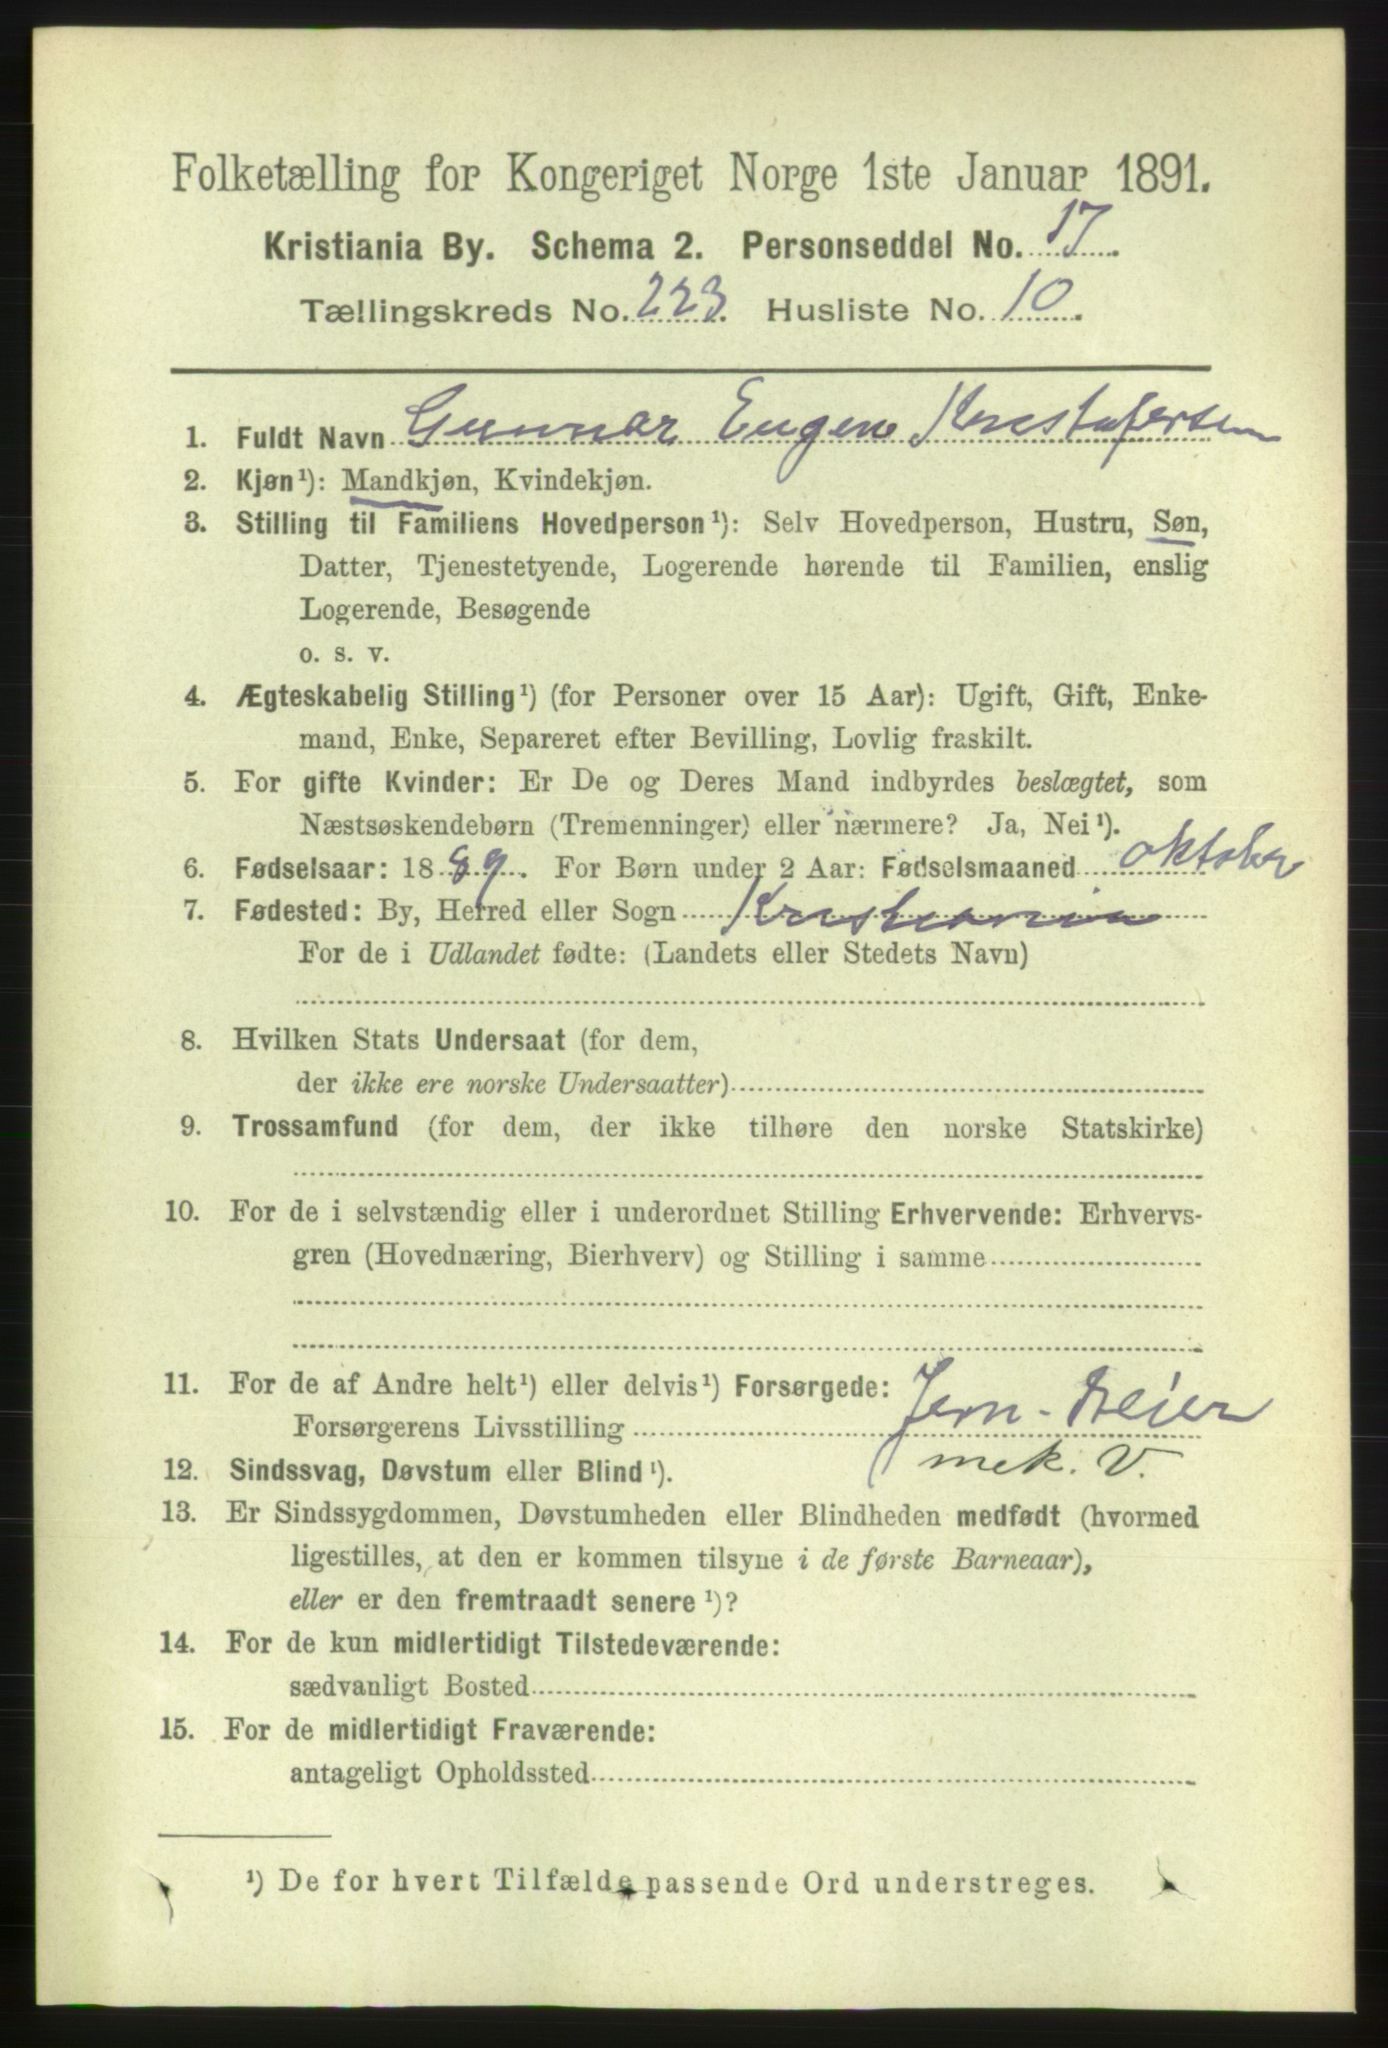 Folketælling for Kongeriget Norge 1ste Januar 1891.
Kristiania By. Schema 2. Personseddel No. 17.
Tællingskreds No. 223. Husliste No. 10.
1. Fuldt Navn Gunnar Eugen Kristofersen
2. Kjøn¹): Mandkjøn, Kvindekjøn.
3. Stilling til Familiens Hovedperson¹): Selv Hovedperson, Hustru, Søn,
Datter, Tjenestetyende, Logerende hørende til Familien, enslig
Logerende, Besøgende
o. s. v.
4. Ægteskabelig Stilling¹) (for Personer over 15 Aar): Ugift, Gift, Enke-
mand, Enke, Separeret efter Bevilling, Lovlig fraskilt.
5. For gifte Kvinder: Er De og Deres Mand indbyrdes beslægtet, som
Næstsøskendebørn (Tremenninger) eller nærmere? Ja, Nei¹).
6. Fødselsaar: 1889. For Børn under 2 Aar: Fødselsmaaned oktober
7. Fødested: By, Herred eller Sogn Kristiania
For de i Udlandet fødte: (Landets eller Stedets Navn)
8. Hvilken Stats Undersaat (for dem,
der ikke ere norske Undersaatter)
9. Trossamfund (for dem, der ikke tilhøre den norske Statskirke)
10. For de i selvstændig eller i underordnet Stilling Erhvervende: Erhvervs-
gren (Hovednæring, Bierhverv) og Stilling i samme
11. For de af Andre helt¹) eller delvis¹) Forsørgede:
Forsørgerens Livsstilling Jern-dreier
mek. V.
12. Sindssvag, Døvstum eller Blind¹).
13. Er Sindssygdommen, Døvstumheden eller Blindheden medfødt (hvormed
ligestilles, at den er kommen tilsyne i de første Barneaar),
eller er den fremtraadt senere¹)?
14. For de kun midlertidigt Tilstedeværende:
sædvanligt Bosted
15. For de midlertidigt Fraværende:
antageligt Opholdssted
¹) De for hvert Tilfælde passende Ord understreges.